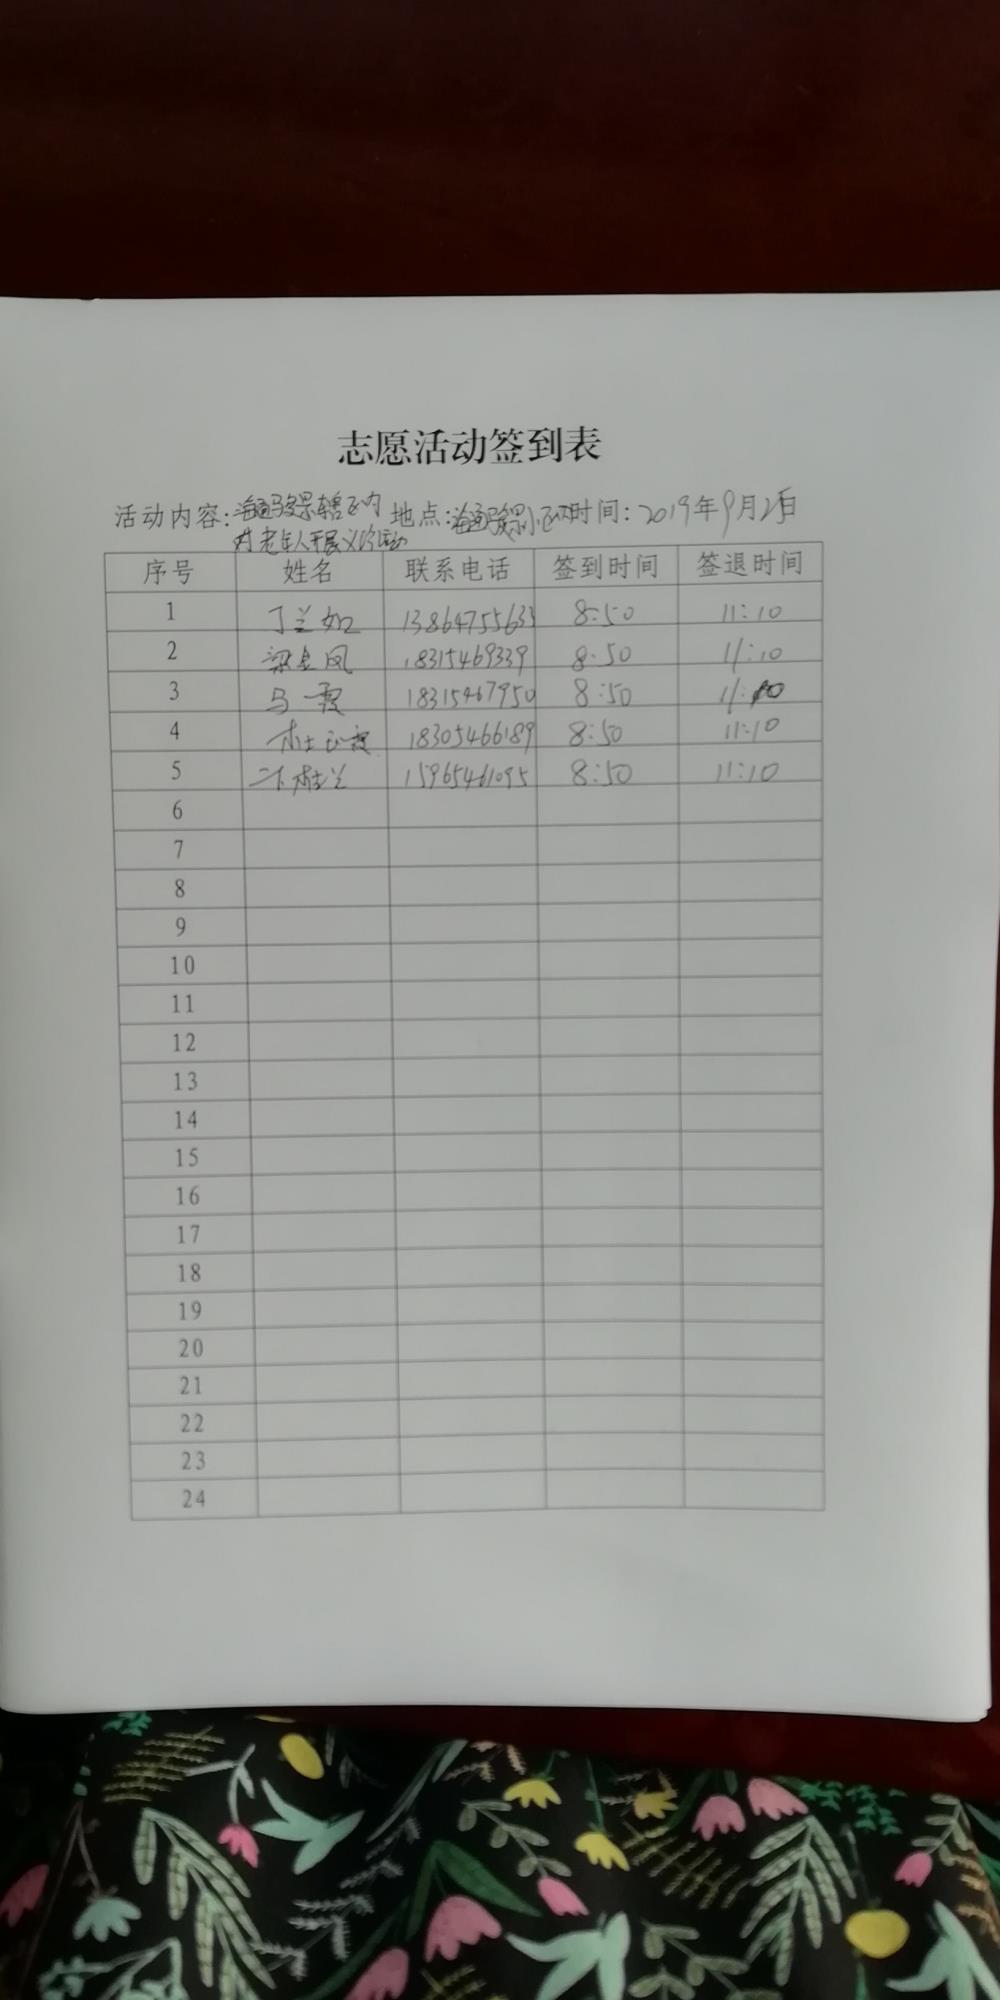 志愿活动签到表
活动内容: 辖区内 地点: 时间: 2019年9月2日
对老年人开展义诊活动
序号 姓名 联系电话 签到时间 签退时间
1 丁兰如 13864755633 8:50 11:10
2 梁金凤 18315469339 8:50 11:10
3 马霞 18315467950 8:50 11:10
4 杜 霞 18305466189 8:50 11:10
5 桂兰 15965461095 8:50 11:10
6
7
8
9
10
11
12
13
14
15
16
17
18
19
20
21
22
23
24